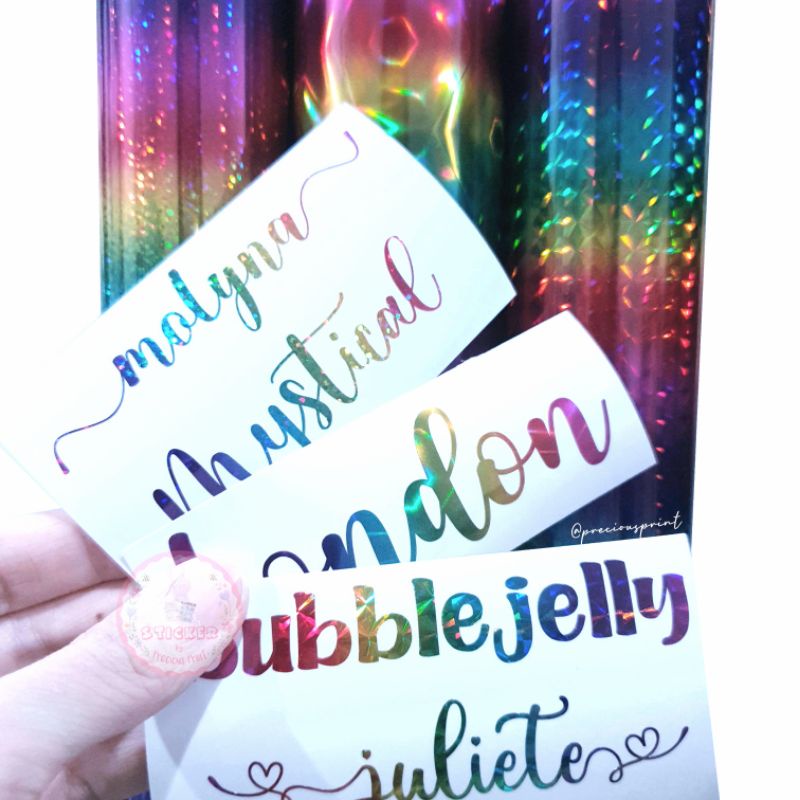 molyna
Mystical
London
@preciousprint
bubblejelly
STICKER
by
Precious Print
juliete